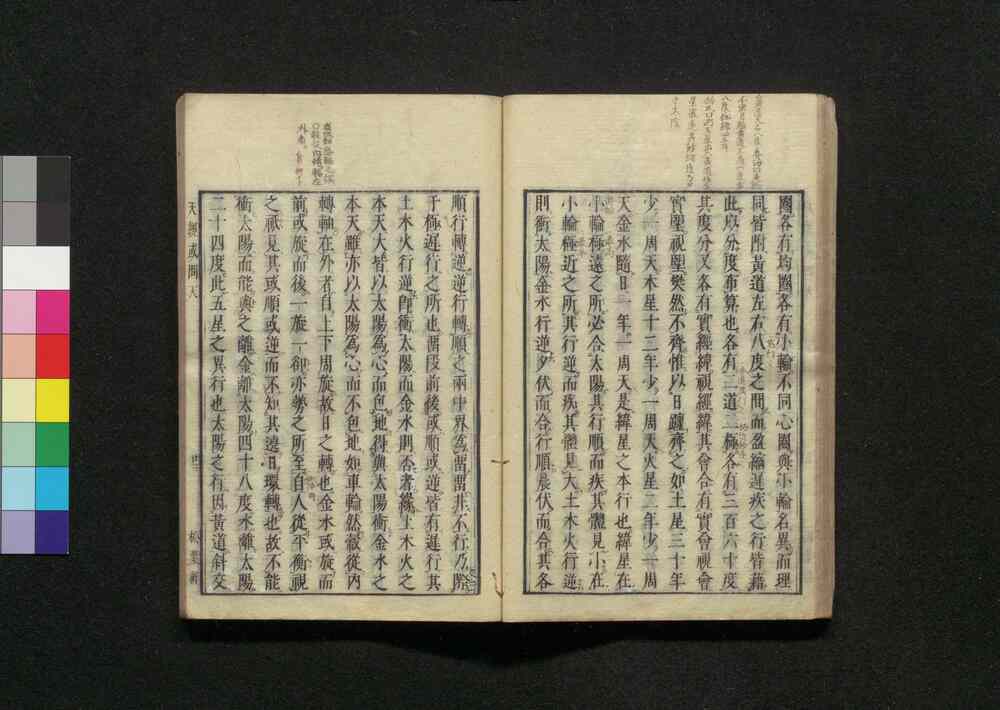 圈各有均圈各有小輪不同心圈與小輪名異而理
同皆附黃道左右八度之間而盈縮遲疾之行皆藉
此以分度布算也各有二道二極各有三百六十度
其度分又各有實經緯視經緯其會合有實會視會
實壁視壁樊然不齊惟以日躔齊之如土星三十年
少一周天木星十二年少一周天火星二年少一周
天金水隨日一年一周天是緯星之本行也緯星在
小輪極遠之所必合太陽其行順而疾其體見小在
小輪極近之所其行逆而疾其體見大土木火行逆
則衝太陽金水行逆夕伏而合行順晨伏而合其各
順行轉逆逆行轉順之兩中界為畱畱非不行乃際
于極遲行之所也畱段前後或順或逆皆有遲行其
土木火行逆即衝太陽而金水則否者緣土木火之
本天大皆以太陽為心而包地得與太陽衝金水之
本天雖亦以太陽為心而不包地如車輪然轂從內
轉軸在外者自上下周旋故日之轉也金水或旋而
前或旋而後一旋一卻亦勢之所至自人從平衡視
之祇見其或順或逆而不知其遶日環轉也故不能
衝太陽而能與之離金離太陽四十八度水離太陽
二十四度此五星之異行也太陽之行因黃道斜交
天經或問天